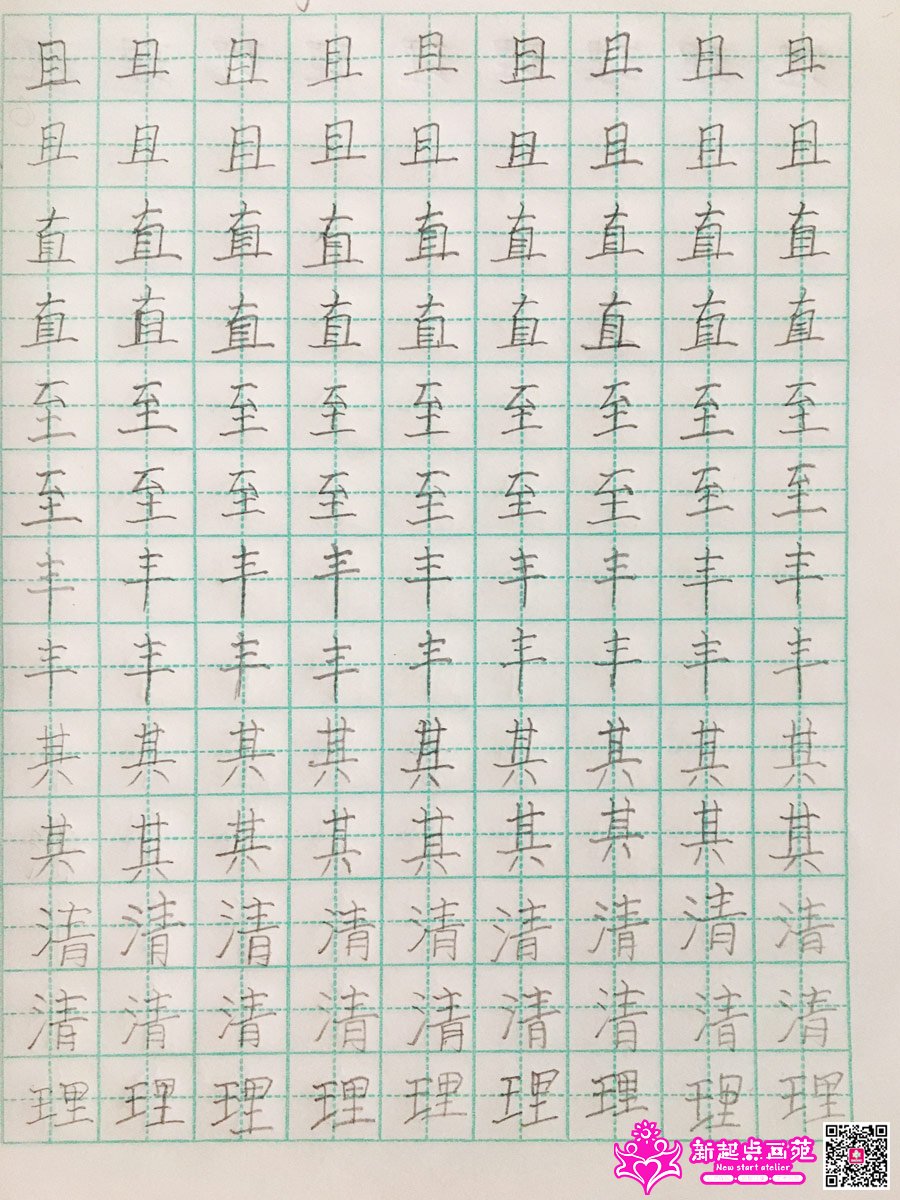 且且且且且且且且且
且且且且且且且且且
直直直直直直直直直
直直直直直直直直直
至至至至至至至至至
至至至至至至至至至
丰丰丰丰丰丰丰丰丰
丰丰丰丰丰丰丰丰丰
其其其其其其其其其
其其其其其其其其其
清清清清清清清清清
清清清清清清清清清
理理理理理理理理理
新起点画苑
New start atelier